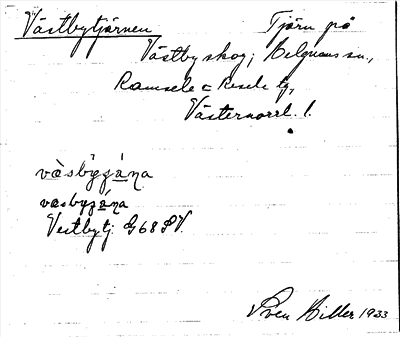 Västbytjärnen Tjärn på
Västby skog, Helgums sn.,
Ramsele o Resele tg,
Västernorrl. l.
vàsbyʒá̱ŋa
vasbyʒá̱ŋa
Vestbytj. G68SV.
Sven Hiller 1933